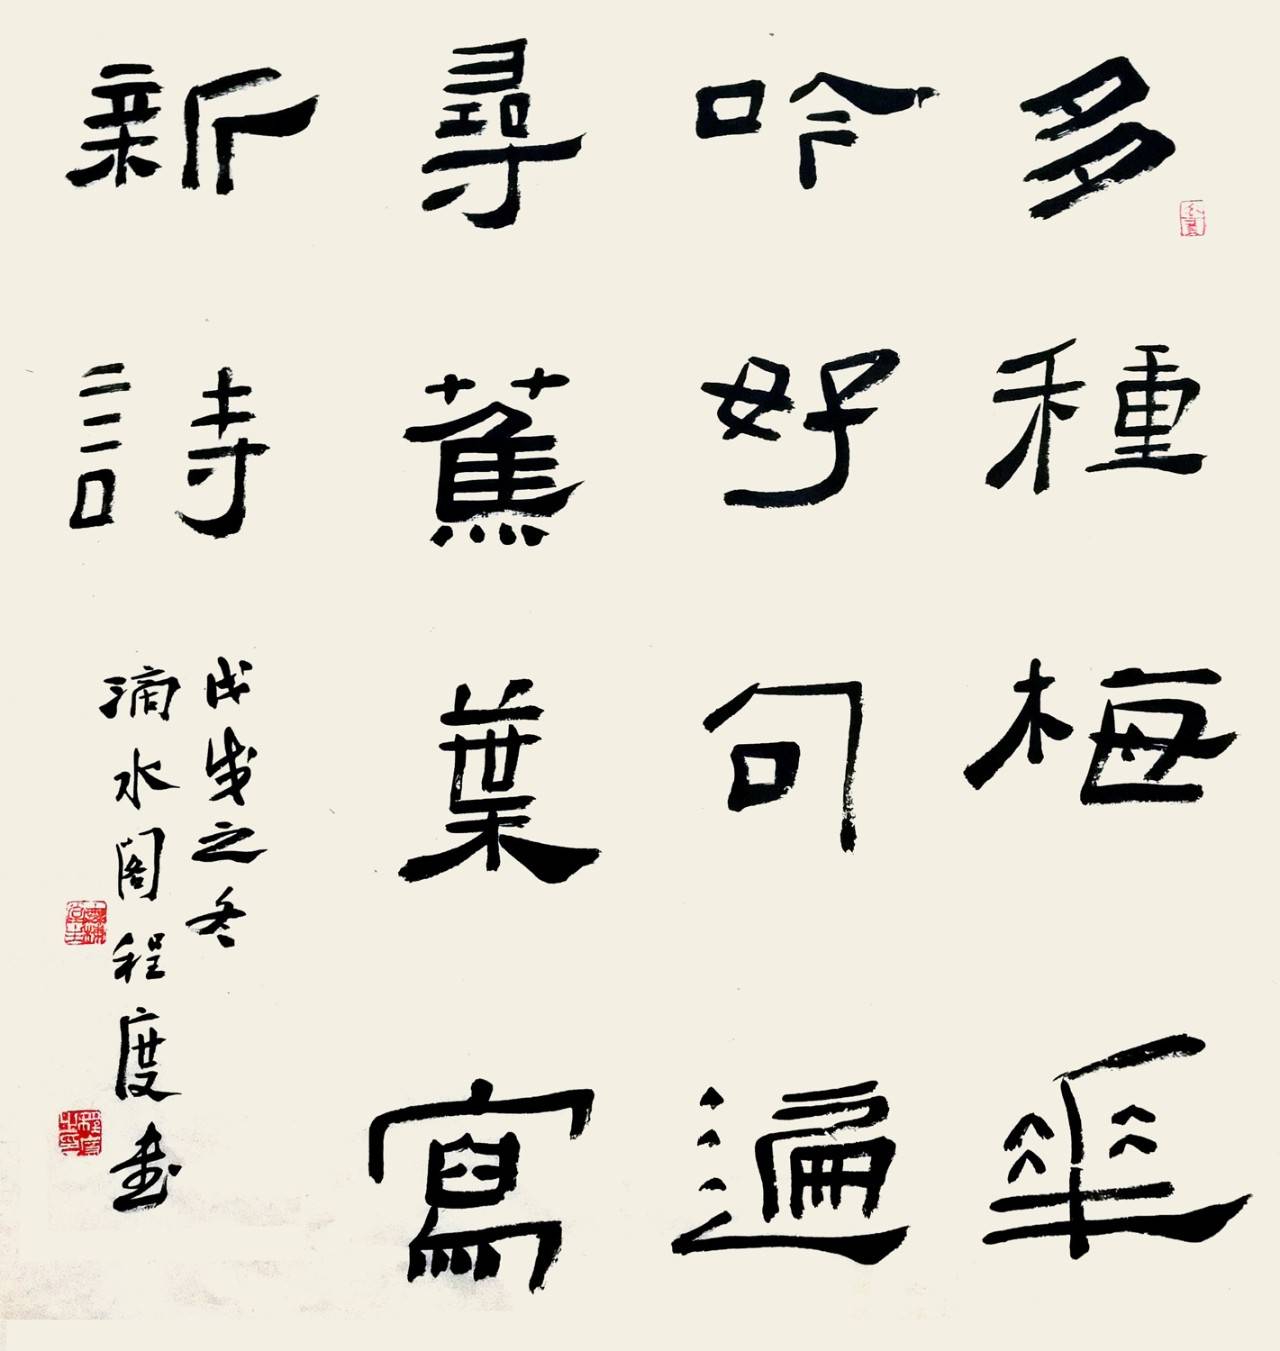 多種梅華
吟好句遍
尋蕉葉寫
新詩
戊戌之冬
滴水閣程度書
程度之印